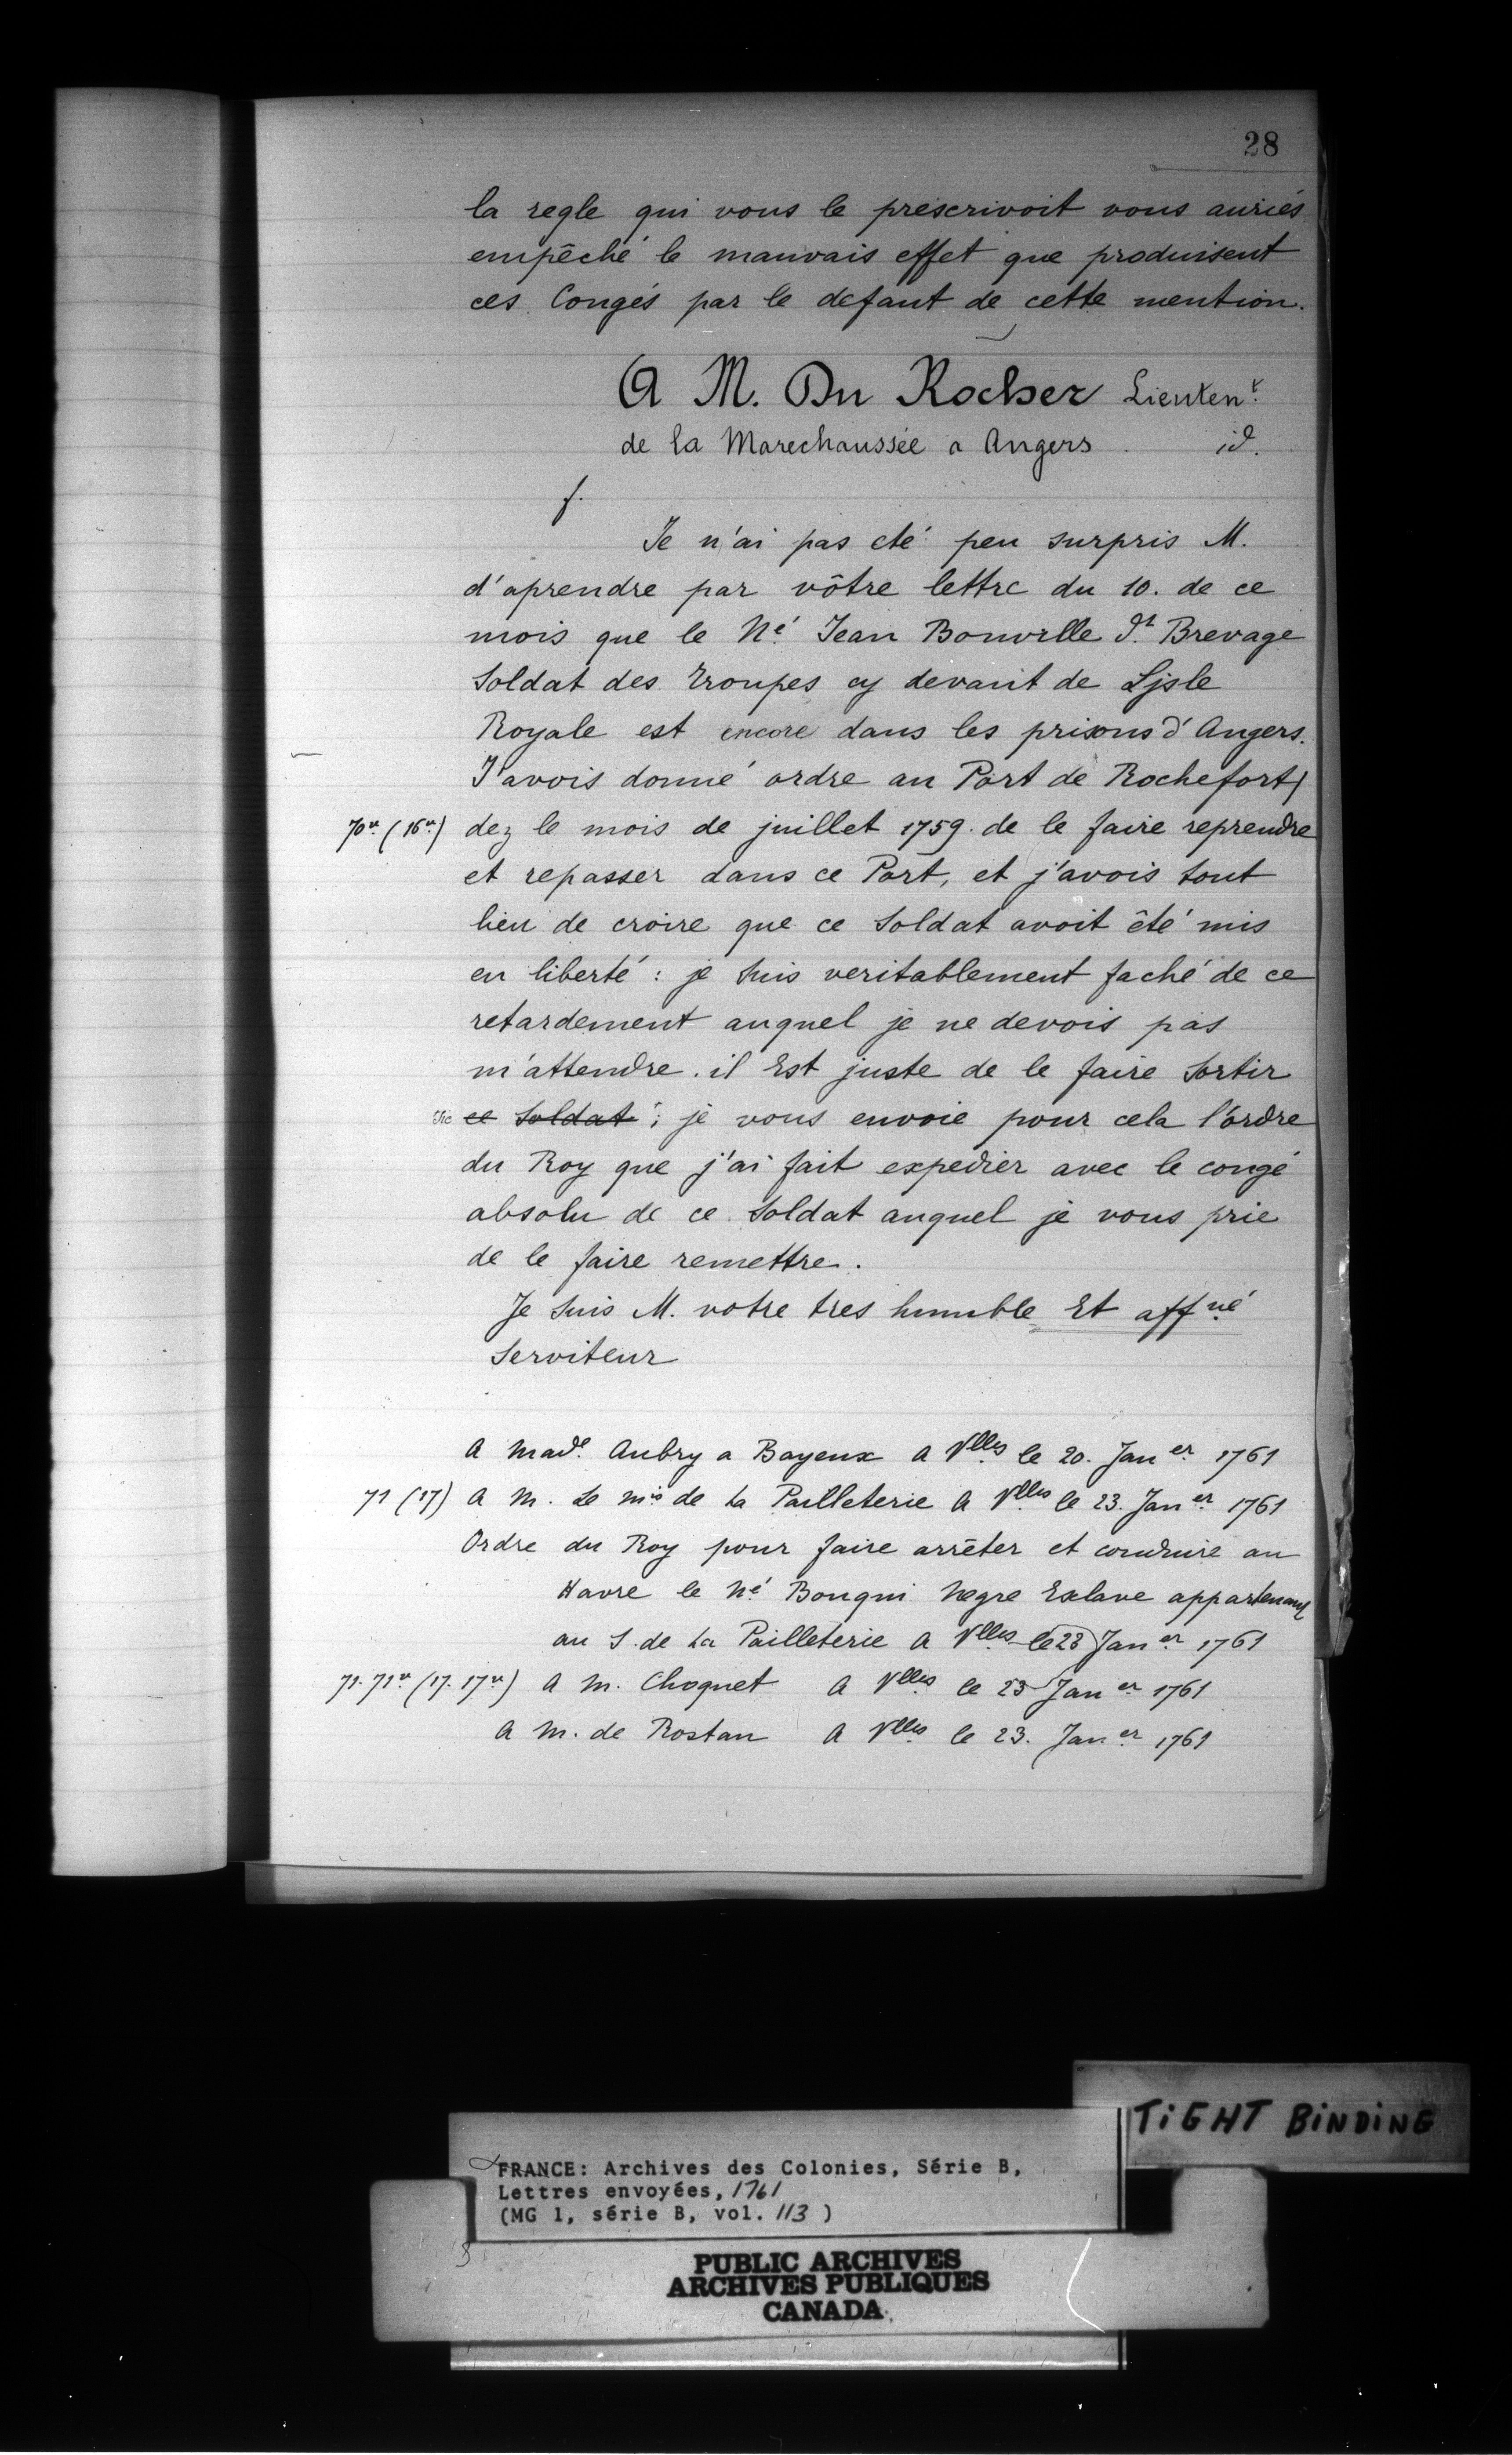 28
la regle qui vous le prescrivoit vous auriés
empêché le mauvais effet que produisent
ces Congés par le defaut de cette mention.
A M. Du Rocher Lieutent.
de la Marechaussée a Angers id.
f.
Je n'ai pas eté peu surpris M.
d'aprendre par vôtre lettre du 10. de ce
mois que le Né. Jean Bonville dt. Brevage
Soldat des troupes cy devant de Lisle
Royale est encore dans les prisons d'Angers.
J'avois donné ordre au Port de Rochefort/
70vo. (16vo.) dez le mois de juillet 1759. de le faire reprendre
et repasser dans ce Port, et j'avois tout
lieu de croire que ce Soldat avoit êté mis
en liberté : je suis veritablement faché de ce
retardement auquel je ne devois pas
m'attendre. il Est juste de le faire Sortir
sic ce Soldat ; je vous envoie pour cela l'ordre
du Roy que j'ai fait expedier avec le congé
absolu de ce Soldat auquel je vous prie
de le faire remettre.
Je suis M. votre tres humble Et affné
Serviteur
A Made. Aubry a Bayeux A Vlles le 20. Janer. 1761
71 (17) A M. Le Mis de La Pailleterie A Vlles le 23. Janer. 1761
Ordre du Roy pour faire arrêter et conduire au
Havre le Né. Bouqui Negre Esclave appartenant
au S. de La Pailleterie A Vlles le 23 Janer. 1761
71. 71vo (17. 17vo) A M. Choquet A Vlles le 23 Janer. 1761
A M. de Rostan A Vlles le 23. Janer. 1761
TiGHT BiNDiNG
FRANCE: Archives des Colonies, Série B,
Lettres envoyées, 1761
(MG 1, série B, vol. 113 )
PUBLIC ARCHIVES
ARCHIVES PUBLIQUES
CANADA